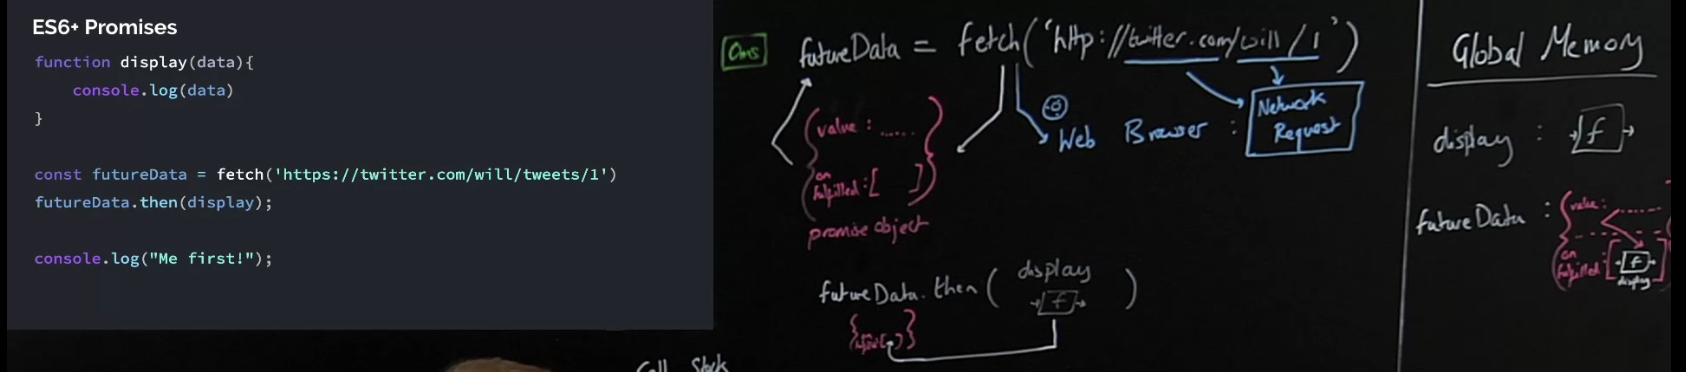 ES6+ Promises
function display(data){
console.log(data)
}
const futureData = fetch('https://twitter.com/will/tweets/1')
futureData.then(display);
console.log("Me first!");
0ms
futureData = fetch('http://twitter.com/will/1')
{value : ......
on
fulfilled : [ ] }
promise object
Web Browser :
Network
Request
futureData.then( display )
f
Call Stack
Global Memory
display : f
futureData : {value : ......
on
fulfilled : [ f ]
display